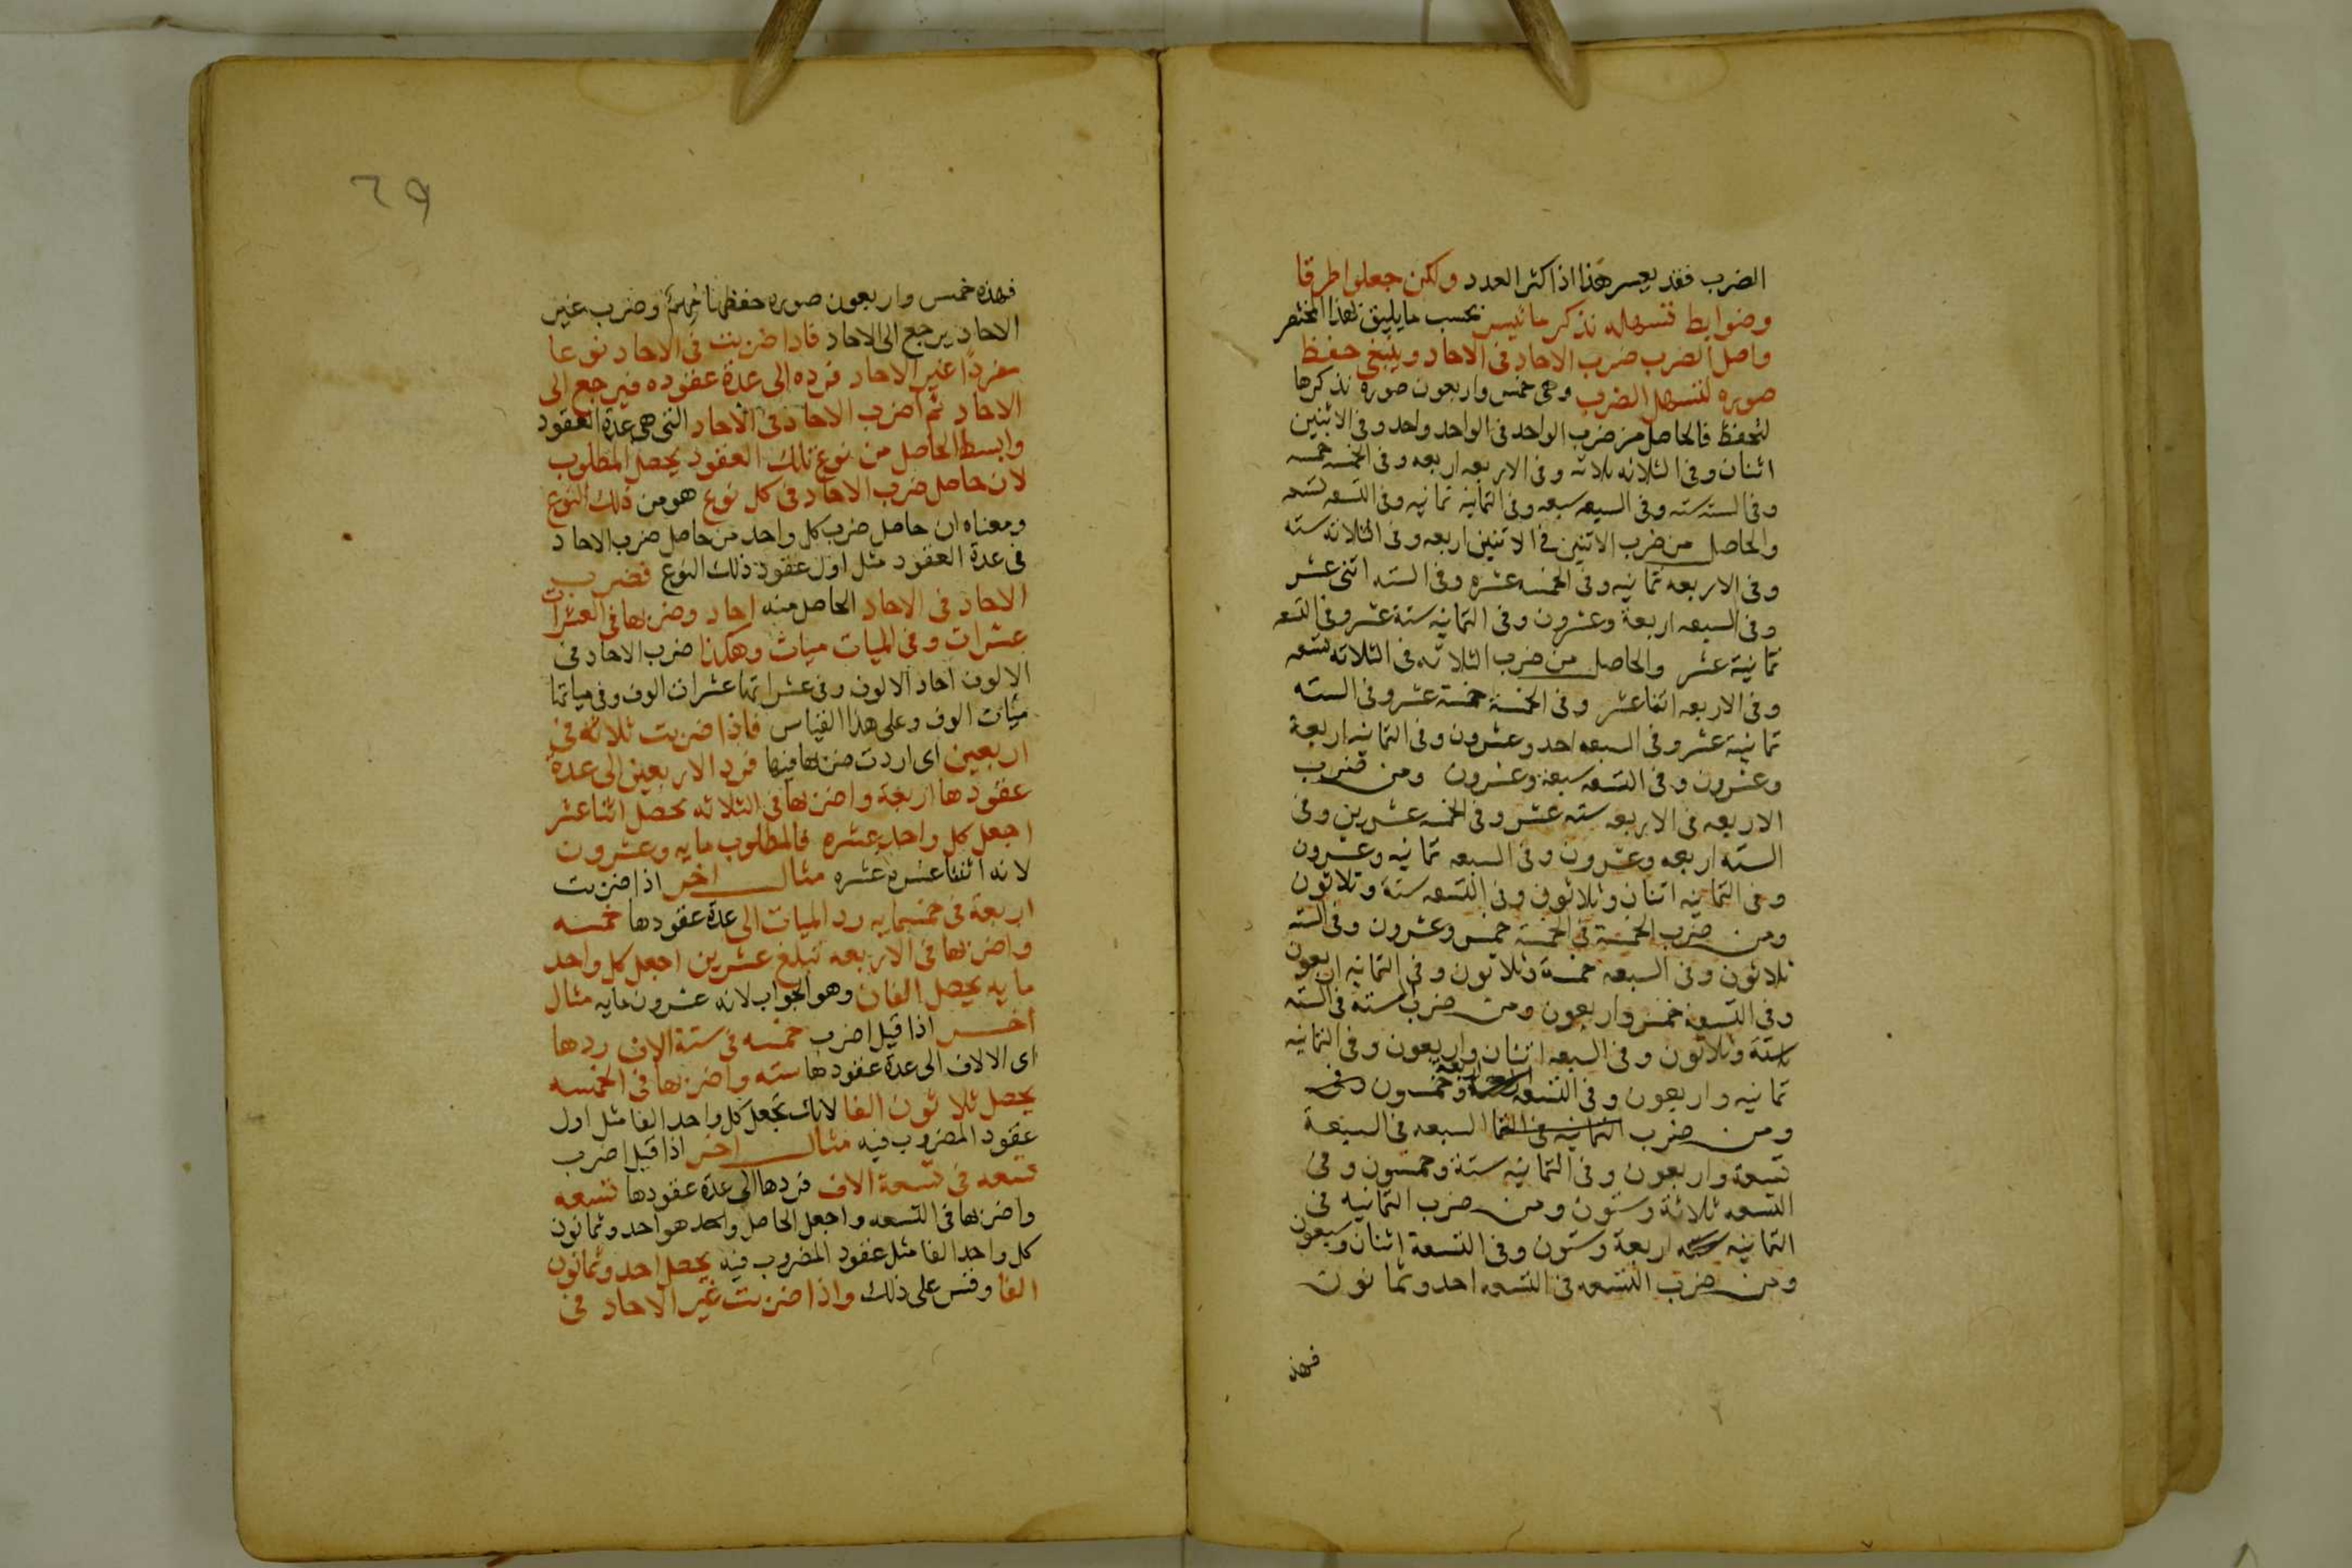 الضرب فقد يعسر هذا اذا كثر العدد ولكن جعلوا طرقا
وضوابط تسهله نذكر ما تيسر بحسب ما يليق بهذا المختصر
واصل الضرب ضرب الاحاد في الاحاد وينبغي حفظ
صوره لتسهل الضرب وهي خمس واربعون صوره نذكرها
لتحفظ فالحاصل من ضرب الواحد في الواحد واحد وفي الاثنين
اثنان وفي الثلاثه ثلاثه وفي الاربعه اربعه وفي الخمسه خمسه
وفي السته سته وفي السبعه سبعه وفي الثمانيه ثمانيه وفي التسعه تسعه
والحاصل من ضرب الاثنين في الاثنين اربعه وفي الثلاثه سته
وفي الاربعه ثمانيه وفي الخمسه عشره وفي السته اثنى عشر
وفي السبعه اربعة وعشرون وفي الثمانيه ستة عشر وفي التسعه
ثمانية عشر والحاصل من ضرب الثلاثه في الثلاثه تسعه
وفي الاربعه اثنا عشر وفي الخمسة خمسة عشر وفي السته
ثمانية عشر وفي السبعه احد وعشرون وفي الثمانيه اربعة
وعشرون وفي التسعه سبعة وعشرون ومن ضرب
الاربعه في الاربعه سته عشر وفي الخمسه عشرين وفي
السته اربعه وعشرون وفي السبعه ثمانيه وعشرون
وفي الثمانيه اثنان وثلاثون وفي التسعه ستة وثلاثون
ومن ضرب الخمسة في الخمسة خمس وعشرون وفي السته
ثلاثون وفي السبعه خمسة وثلاثون وفي الثمانيه اربعون
وفي التسعة خمس واربعون ومن ضرب الستة في السته
ستة وثلاثون وفي السبعه اثنان واربعون وفي الثمانيه
ثمانيه واربعون وفي التسعه اربعة وخمسون وفي
ومن ضرب الثمانيه في الثما السبعه في السبعة
تسعة واربعون وفي الثمانيه ستة وخمسون وفي
التسعه ثلاثة وستون ومن ضرب الثمانيه في
الثمانيه اربعة وستون وفي التسعة اثنان وسبعون
ومن ضرب التسعه في التسعه احد وثمانون
فهذه
٢٩
فهذه خمس واربعون صوره حفظها مهمة وضرب غير
الاحاد يرجع الى الاحاد فاذا ضربت في الاحاد نوعا
مفردا غير الاحاد فرده الى عدة عقوده فيرجع الى
الاحاد ثم اضرب الاحاد في الاحاد التي هي عدة العقود
وابسط الحاصل من نوع تلك العقود يحصل المطلوب
لان حاصل ضرب الاحاد في كل نوع هو من ذلك النوع
ومعناه ان حاصل ضرب كل واحد من حاصل ضرب الاحاد
في عدة العقود مثل اول عقود ذلك النوع فضرب
الاحاد في الاحاد الحاصل منه احاد وضربها في العشرات
عشرات وفي الميات ميات وهكذا ضرب الاحاد في
الالوف احاد الالوف وفي عشراتها عشرات الوف وفي مياتها
ميات الوف وعلى هذا القياس فاذا ضربت ثلاثه في
اربعين اي اردت ضربها فيها فرد الاربعين الى عدة
عقودها اربعة واضربها في الثلاثه يحصل اثنا عشر
اجعل كل واحد عشره فالمطلوب مايه وعشرون
لانه اثنتا عشرة عشره مثال اخر اذا ضربت
اربعة في خمسمايه رد الميات الى عدة عقودها خمسه
واضربها في الاربعه تبلغ عشرين اجعل كل واحد
مايه يحصل الفان وهو الجواب لانه عشرون مايه مثال
اخر اذا قيل اضرب خمسه في ستة الاف ردها
اي الالاف الى عدة عقودها سته واضربها في الخمسه
يحصل ثلاثون الفا لانك تجعل كل واحد الفا مثل اول
عقود المضروب فيه مثال اخر اذا قيل اضرب
تسعه في تسعة الاف فردها الى عدة عقودها تسعه
واضربها في التسعه واجعل الحاصل وهو احد وثمانون
كل واحد الفا مثل عقود المضروب فيه يحصل احد وثمانون
الفا وقس على ذلك واذا ضربت غير الاحاد في